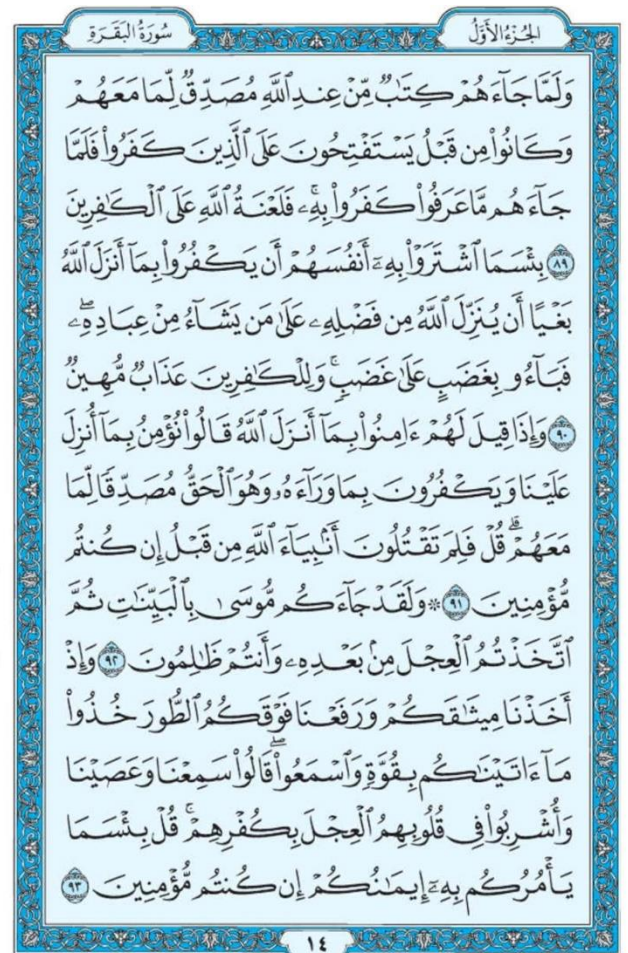 الجُزْءُ الأَوَّلُ
سُورَةُ البَقَرَةِ
وَلَمَّا جَآءَهُمْ كِتَٰبٌ مِّنْ عِندِ ٱللَّهِ مُصَدِّقٌ لِّمَا مَعَهُمْ
وَكَانُوا۟ مِن قَبْلُ يَسْتَفْتِحُونَ عَلَى ٱلَّذِينَ كَفَرُوا۟ فَلَمَّا
جَآءَهُم مَّا عَرَفُوا۟ كَفَرُوا۟ بِهِۦۚ فَلَعْنَةُ ٱللَّهِ عَلَى ٱلْكَٰفِرِينَ
٨٩ بِئْسَمَا ٱشْتَرَوْا۟ بِهِۦٓ أَنفُسَهُمْ أَن يَكْفُرُوا۟ بِمَآ أَنزَلَ ٱللَّهُ
بَغْيًا أَن يُنَزِّلَ ٱللَّهُ مِن فَضْلِهِۦ عَلَىٰ مَن يَشَآءُ مِنْ عِبَادِهِۦۖ
فَبَآءُو بِغَضَبٍ عَلَىٰ غَضَبٍۚ وَلِلْكَٰفِرِينَ عَذَابٌ مُّهِينٌ
٩٠ وَإِذَا قِيلَ لَهُمْ ءَامِنُوا۟ بِمَآ أَنزَلَ ٱللَّهُ قَالُوا۟ نُؤْمِنُ بِمَآ أُنزِلَ
عَلَيْنَا وَيَكْفُرُونَ بِمَا وَرَآءَهُۥ وَهُوَ ٱلْحَقُّ مُصَدِّقًا لِّمَا
مَعَهُمْۗ قُلْ فَلِمَ تَقْتُلُونَ أَنۢبِيَآءَ ٱللَّهِ مِن قَبْلُ إِن كُنتُم
مُّؤْمِنِينَ ٩١ ۞ وَلَقَدْ جَآءَكُم مُّوسَىٰ بِٱلْبَيِّنَٰتِ ثُمَّ
ٱتَّخَذْتُمُ ٱلْعِجْلَ مِنۢ بَعْدِهِۦ وَأَنتُمْ ظَٰلِمُونَ ٩٢ وَإِذْ
أَخَذْنَا مِيثَٰقَكُمْ وَرَفَعْنَا فَوْقَكُمُ ٱلطُّورَ خُذُوا۟
مَآ ءَاتَيْنَٰكُم بِقُوَّةٍ وَٱسْمَعُوا۟ۖ قَالُوا۟ سَمِعْنَا وَعَصَيْنَا
وَأُشْرِبُوا۟ فِى قُلُوبِهِمُ ٱلْعِجْلَ بِكُفْرِهِمْۚ قُلْ بِئْسَمَا
يَأْمُرُكُم بِهِۦٓ إِيمَٰنُكُمْ إِن كُنتُم مُّؤْمِنِينَ ٩٣
١٤